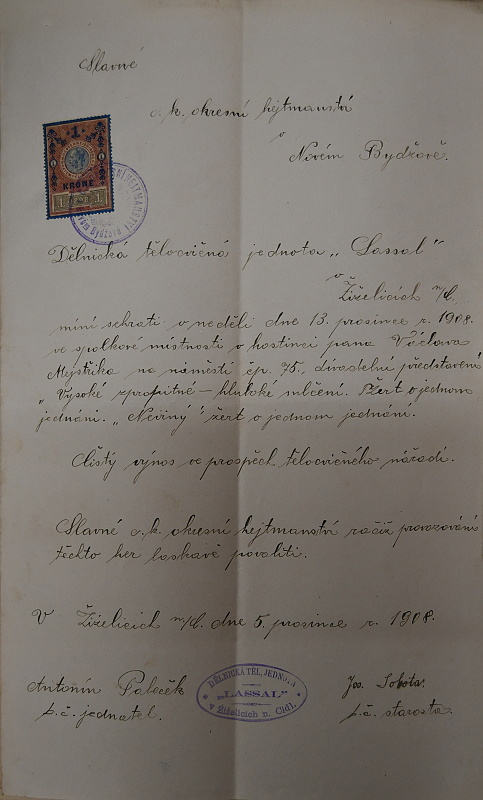 Slavné
c. k. okresní hejtmanství
v
Novém Bydžově.
1
KRONE
1 1908 1
Novém Bydžově
Dělnická tělocvičná jednota „Lassal"
v
Žiželicích n/C.
míní sehrati v neděli dne 13. prosince r. 1908.
ve spolkové místnosti v hostinci pana Václava
Mejstříka na náměstí čp. 75., divadelní představení
„Vysoké zpropitné – hluboké mlčení. Žert o jednom
jednání. „Nevinný" žert o jednom jednání.
Čistý výnos ve prospěch tělocvičného nářadí.
Slavné c. k. okresní hejtmanství račiž provozování
těchto her laskavě povoliti.
V Žiželicích n/C. dne 5. prosince r. 1908.
Antonín Paleček
t. č. jednatel.
DĚLNICKÁ TĚL. JEDNOTA
„LASSAL"
v Žiželicích n. Cidl.
Jos. Sobota.
t. č. starosta.